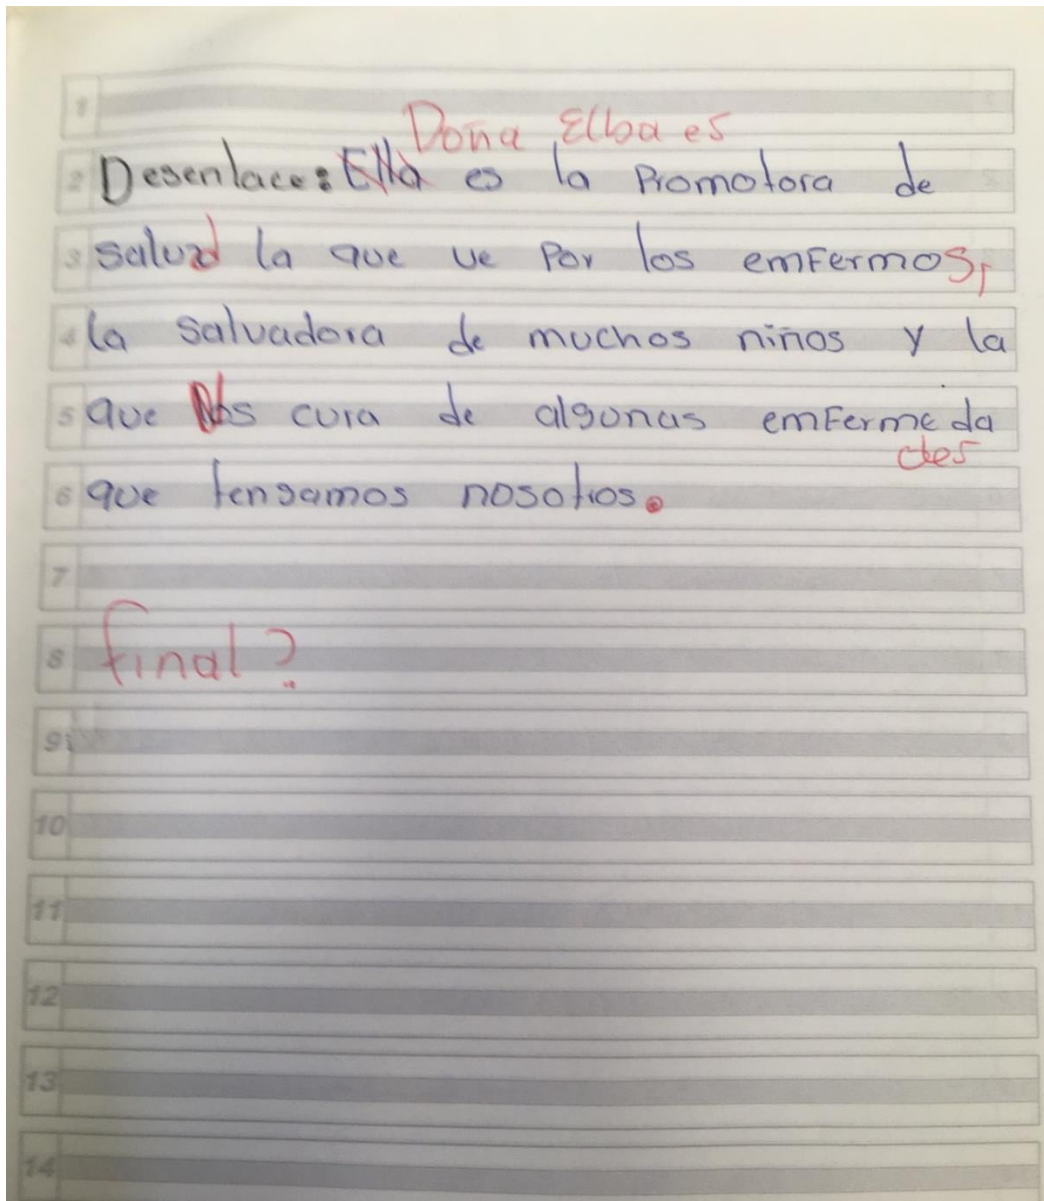 1
Doña Elba es
2 Desenlace: Ella es la Promotora de
3 salud la que ve Por los emfermos,
4 la salvadora de muchos niños y la
5 que Nos cura de algunas emfermeda
des
6 que tengamos nosotros.
7
8 final?
9
10
11
12
13
14